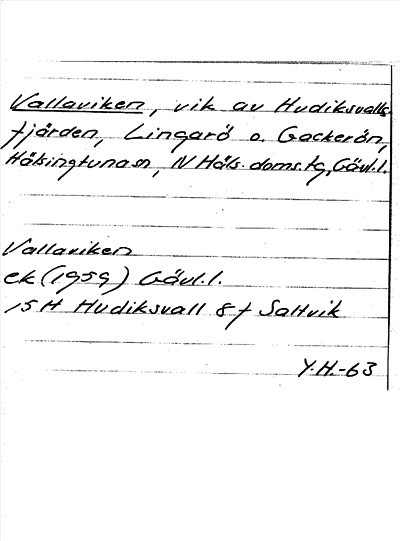 Vallaviken, vik av Hudiksvalls
fjärden, Lingarö o. Gackerön,
Hälsingtuna sn, N Häls. doms. tg, Gävl.l.
Vallaviken
ek (1959) Gävl.l.
15 H Hudiksvall 8 f Saltvik
Y.H.-63